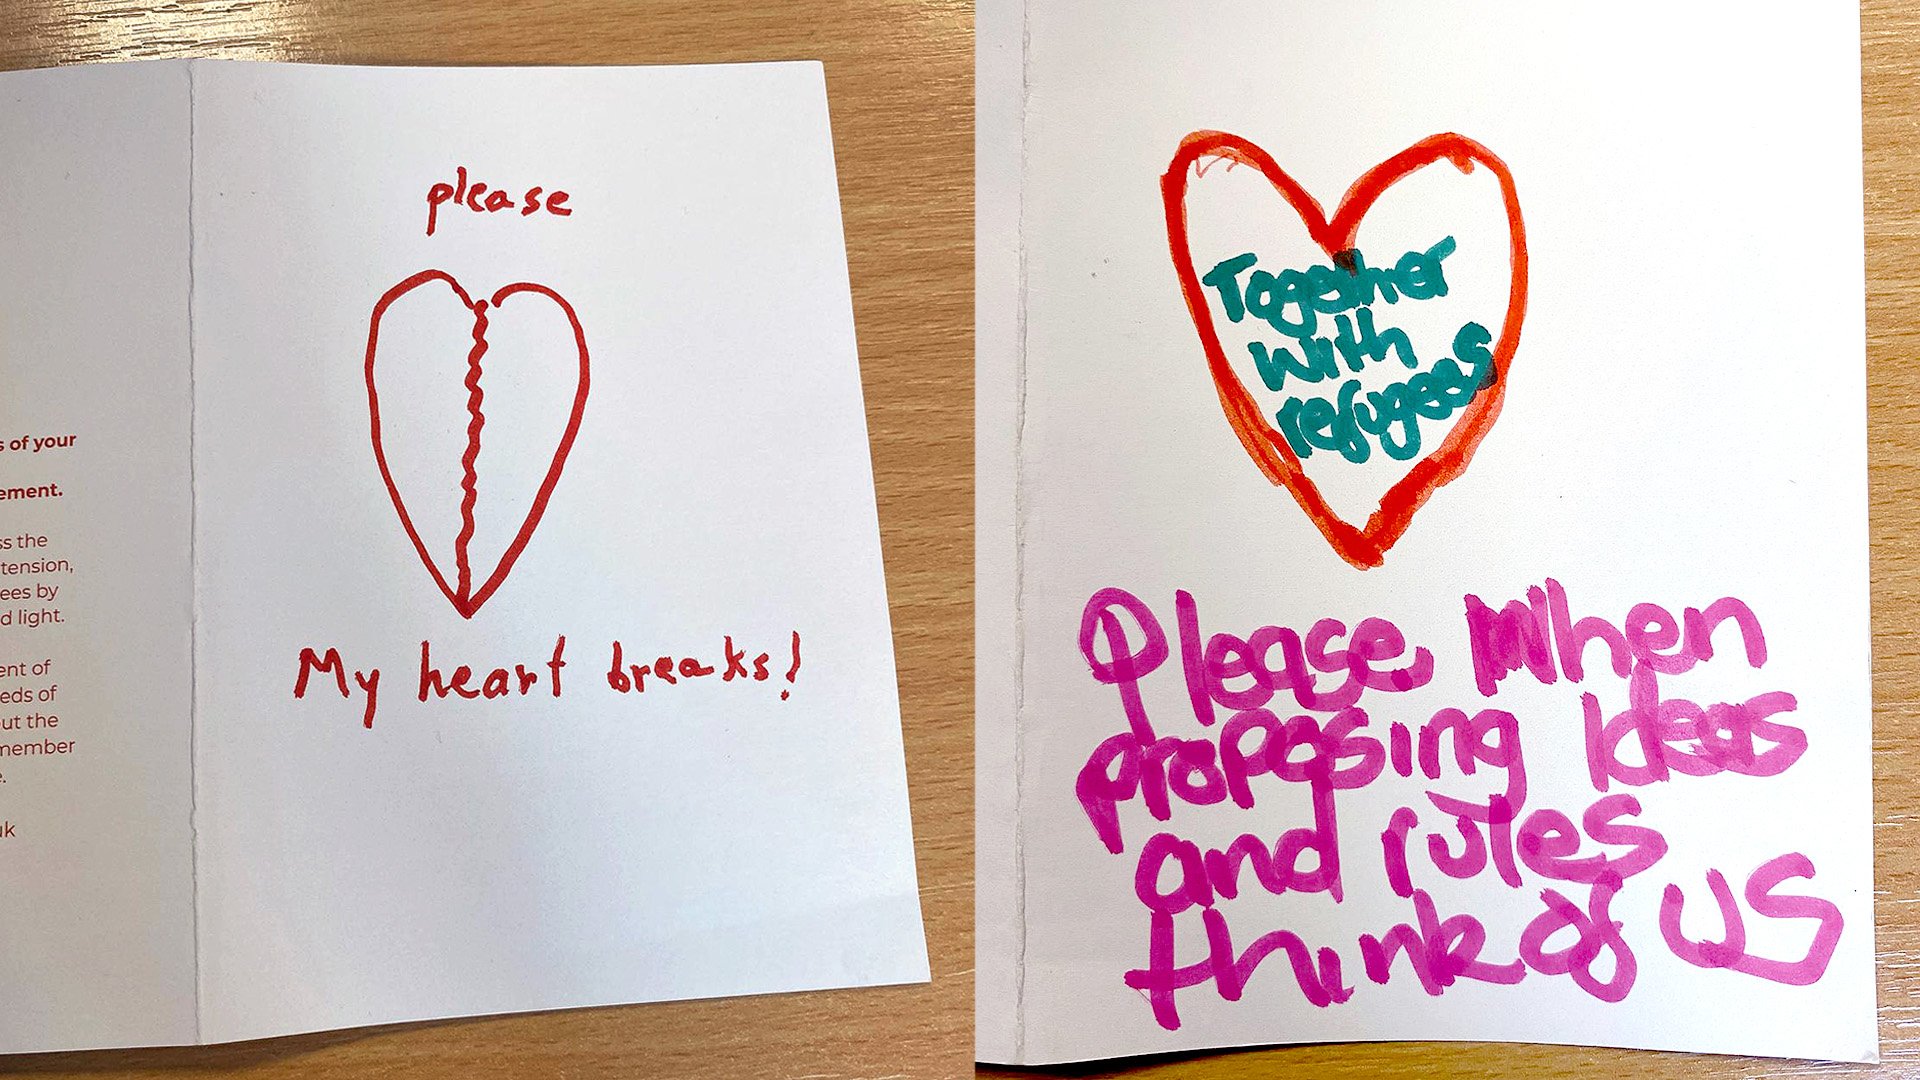 s of your
ement.
ss the
tension,
ees by
d light.
ent of
eds of
out the
member
e.
uk
please
My heart breaks!
Together
with
refugees
Please when
proposing Ideas
and rules
think of us